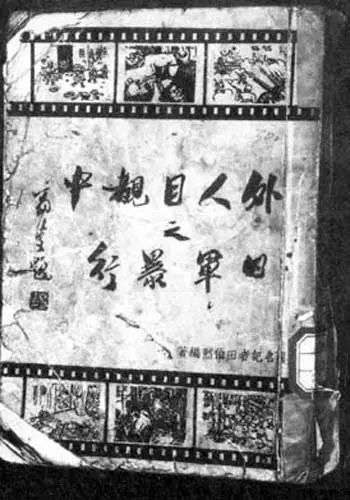 外人目覩中
之
日軍暴行
名記者田伯烈編著